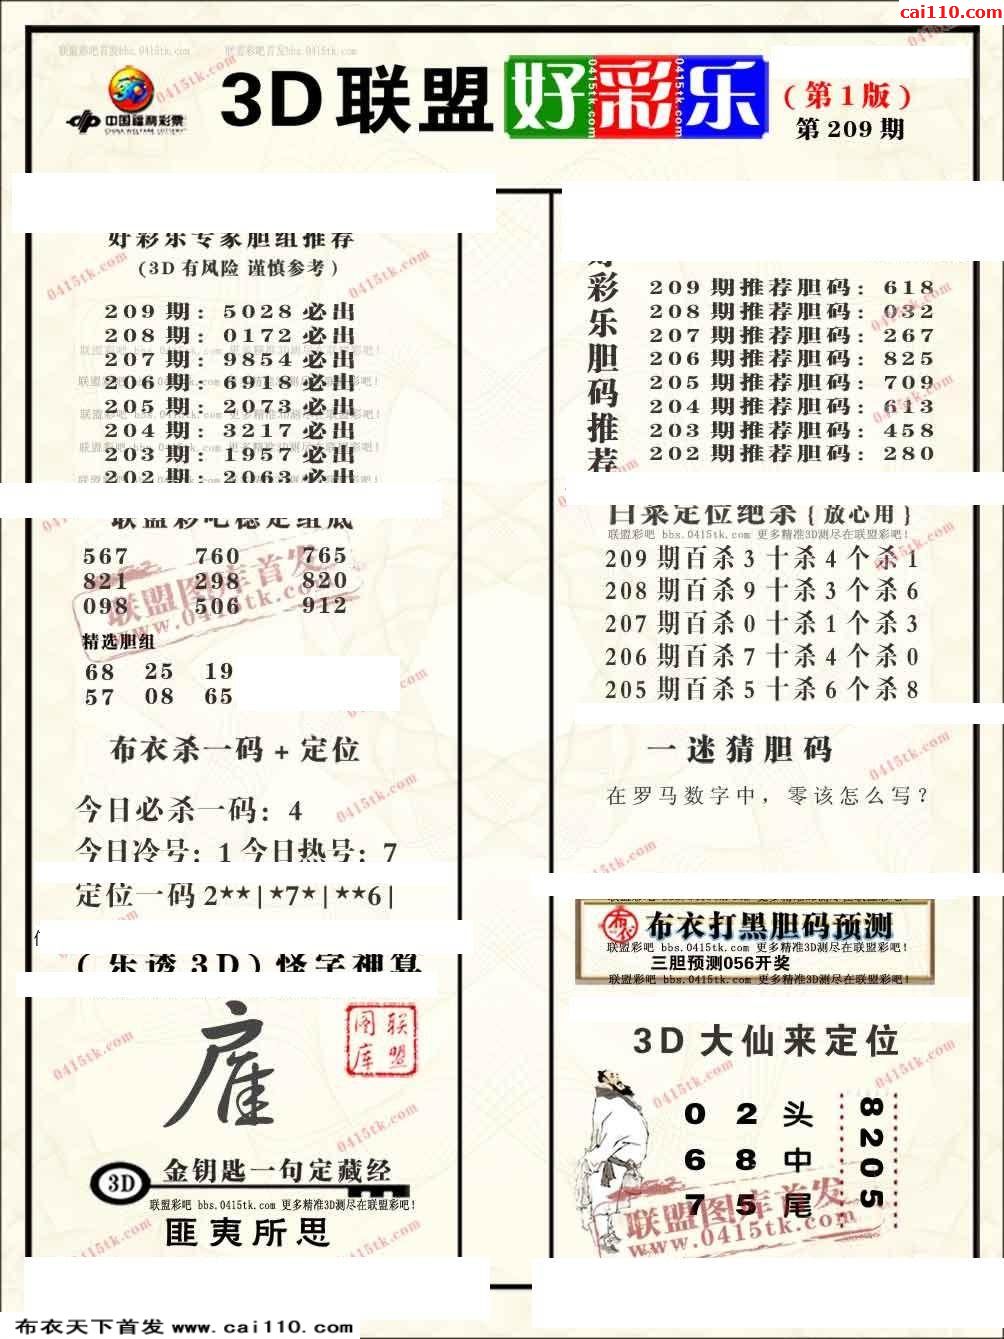 cai110.com
联盟彩吧首发bbs.0415tk.com 联盟彩吧首发bbs.0415tk.com
中国福利彩票
CHINA WELFARE LOTTERY
3D联盟 好彩乐
0415tk.com
0415tk.com
(第1版)
第209期
好彩乐专家胆组推荐
(3D有风险 谨慎参考)
209期:5028必出
208期:0172必出
207期:9854必出
206期:6918必出
205期:2073必出
204期:3217必出
203期:1957必出
202期:2063必出
联盟彩吧稳定组底
567 760 765
821 298 820
098 506 912
联盟图库首发
www.0415tk.com
精选胆组
68 25 19
57 08 65
布衣杀一码+定位
今日必杀一码:4
今日冷号:1今日热号:7
定位一码2**|*7*|**6|
(乐透3D)怪字神算
雇
联盟图库
3D 金钥匙一句定藏经
联盟彩吧 bbs.0415tk.com 更多精准3D测尽在联盟彩吧!
匪夷所思
好彩乐胆码推荐
209期推荐胆码:618
208期推荐胆码:032
207期推荐胆码:267
206期推荐胆码:825
205期推荐胆码:709
204期推荐胆码:613
203期推荐胆码:458
202期推荐胆码:280
白菜定位绝杀{放心用}
联盟彩吧 bbs.0415tk.com 更多精准3D测尽在联盟彩吧!
209期百杀3十杀4个杀1
208期百杀9十杀3个杀6
207期百杀0十杀1个杀3
206期百杀7十杀4个杀0
205期百杀5十杀6个杀8
一迷猜胆码
在罗马数字中，零该怎么写?
布衣 布衣打黑胆码预测
联盟彩吧 bbs.0415tk.com 更多精准3D测尽在联盟彩吧!
三胆预测056开奖
联盟彩吧 bbs.0415tk.com 更多精准3D测尽在联盟彩吧!
3D大仙来定位
0 2头
6 8中
7 5尾
8205
联盟图库首发
www.0415tk.com
布衣天下首发 www.cai110.com